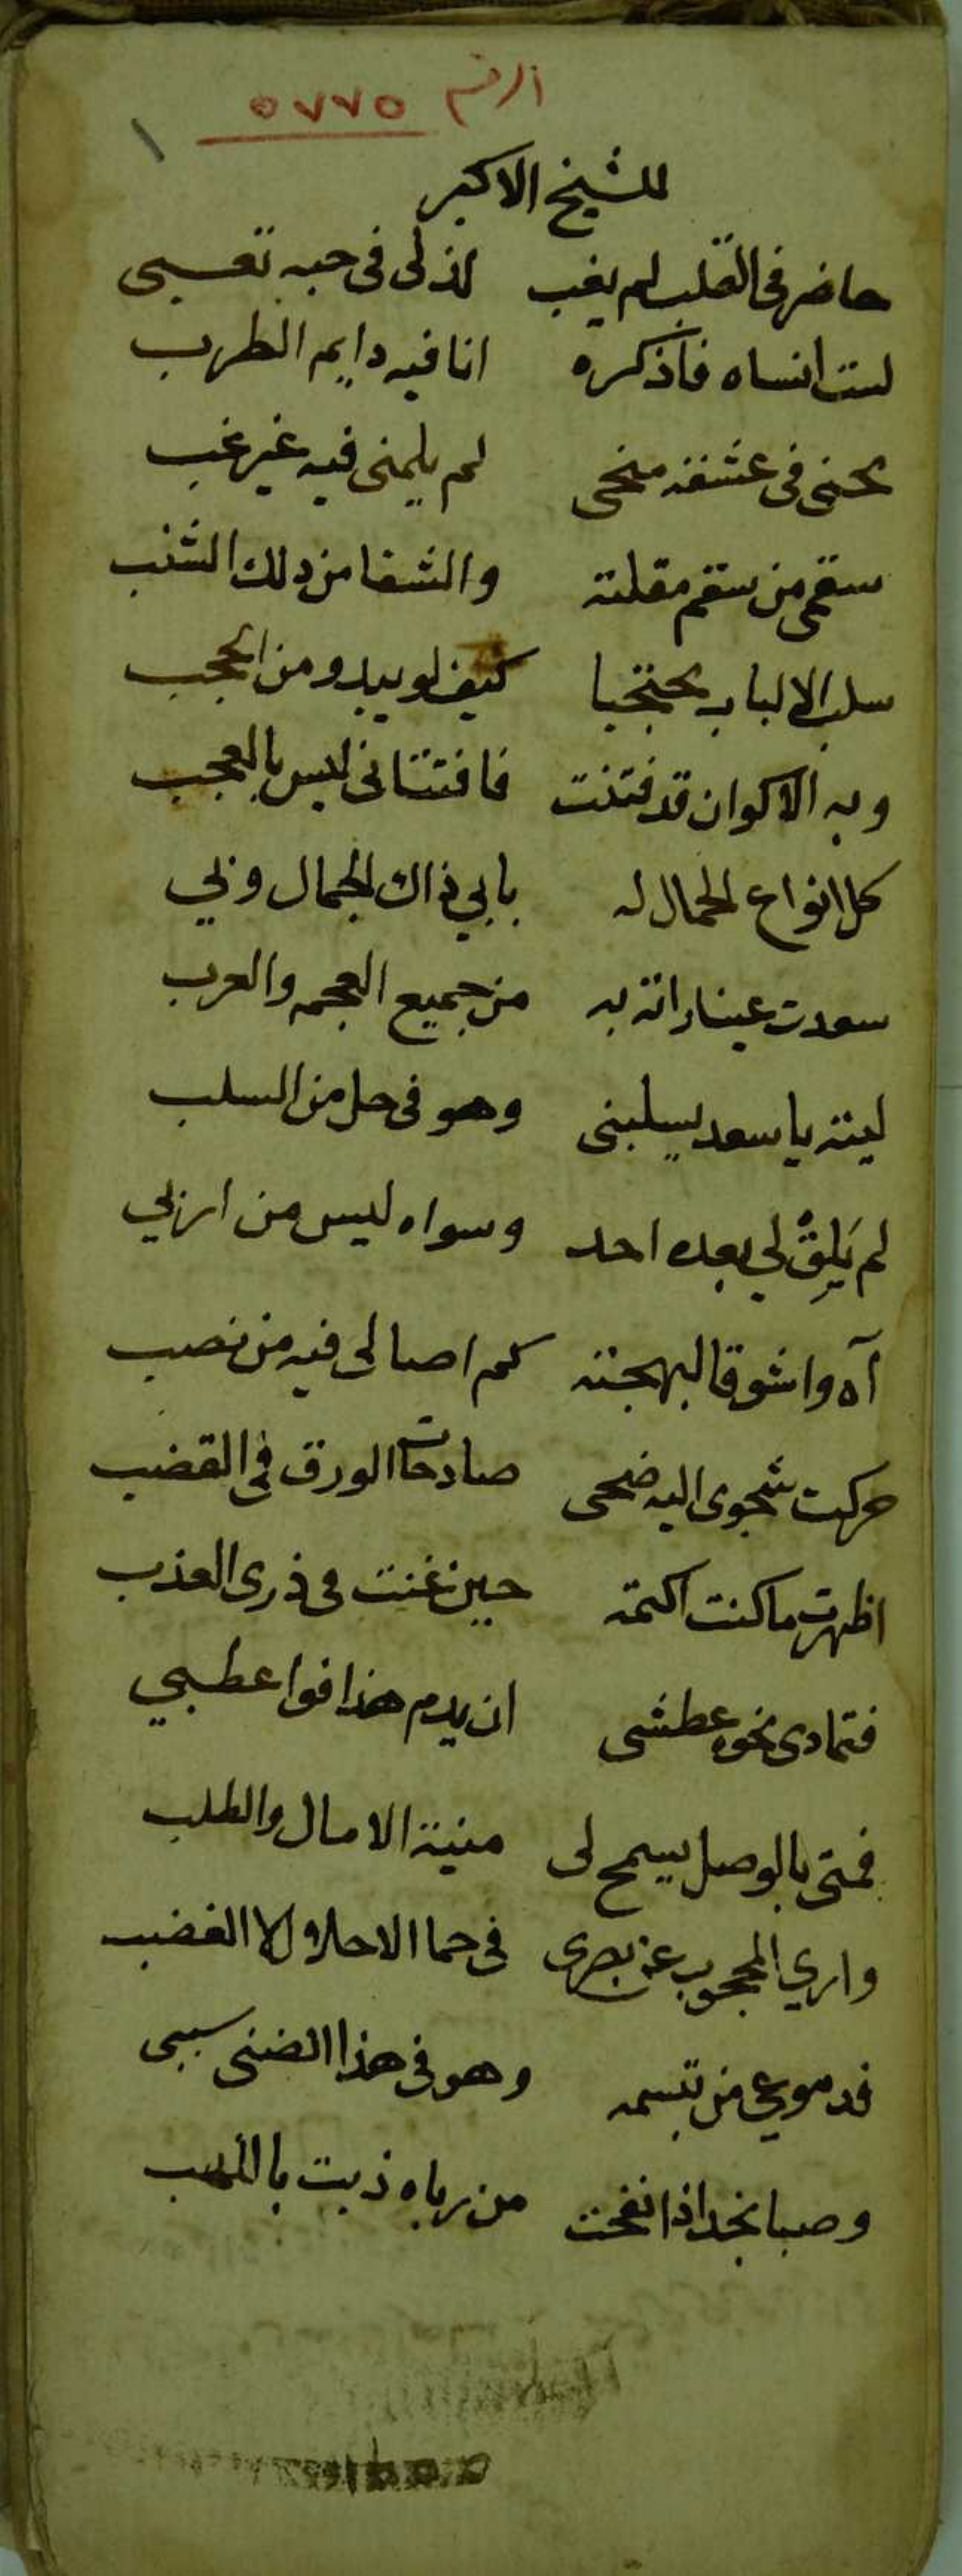 الرقم ٥٧٧٥
١
للشيخ الاكبر
حاضر فى القلب لم يغب لذ لى فى حبه تعبى
لست انساه فاذكره انا فيه دايم الطرب
محنى فى عشقه منحى لم يلمنى فيه غير غبى
سقمى من سقم مقلته والشفا من ذلك الشنب
سلب الالباب محتجبا كيف لو يبدو من الحجب
وبه الاكوان قد فتنت فافتتانى ليس بالعجب
كل انواع الجمال له بابي ذاك الجمال وبي
سعدت عينا راته به من جميع العجم والعرب
ليته يا سعد يسلبنى وهو فى حل من السلب
لم يَلِقْ لي بعده احد وسواه ليس من اربي
آه وا شوقا لبهجته كم اصا لى فيه من نصب
حركت شجوى اليه ضحى صادحات الورق في القضب
اظهرت ما كنت اكتمه حين غنت فى ذرى العذب
فتمادى نحوه عطشى ان يدم هذا فوا عطبي
فمتى بالوصل يسمح لى منية الامال والطلب
وارى المحجوب عن بصرى فى حما الاحلا ولا الغضب
فدموعي من تبسمه وهو فى هذا الضنى سببى
وصبا نجد اذا نفحت من رباه ذبت باللهب